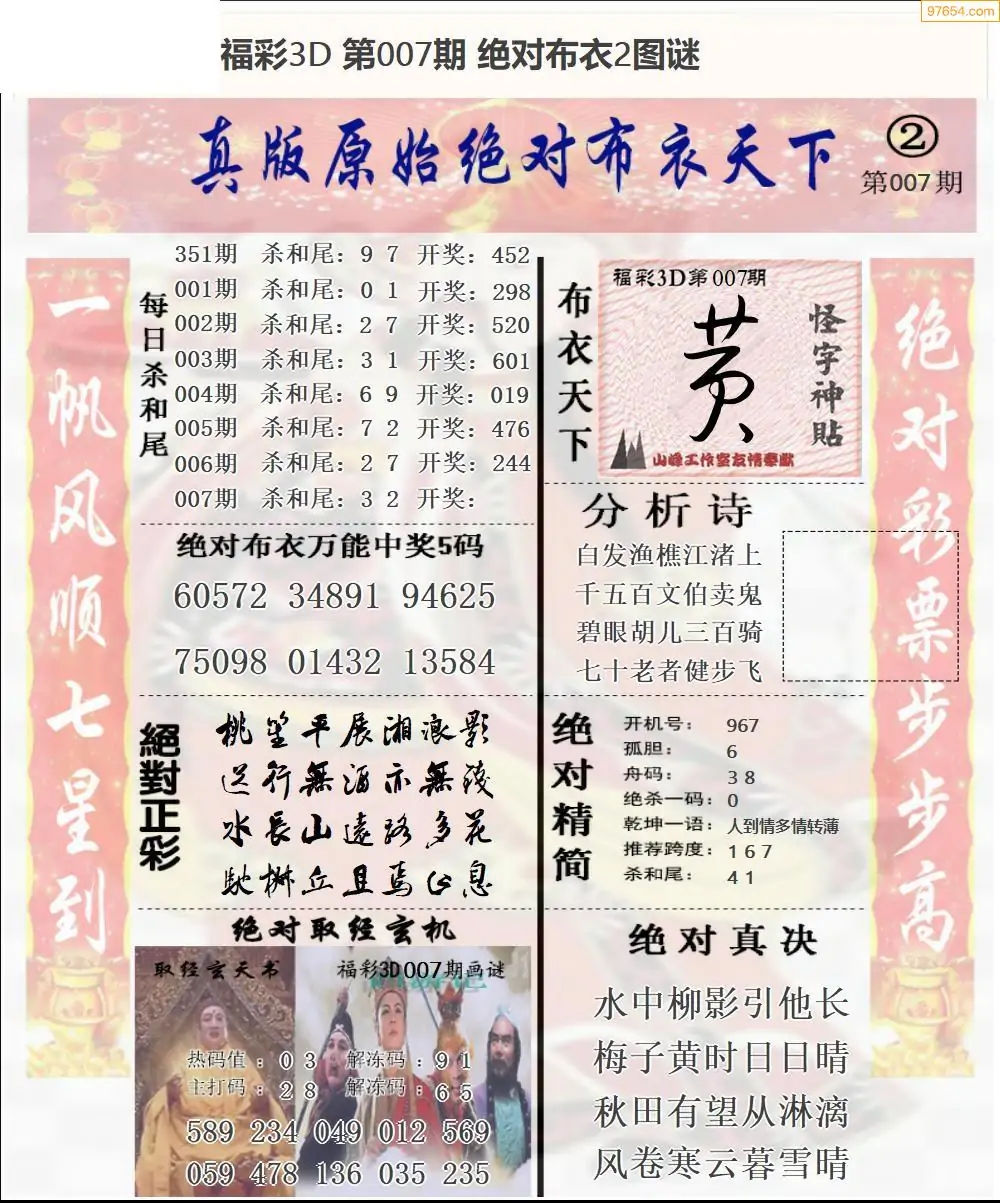 97654.com
福彩3D 第007期 绝对布衣2图谜
真版原始绝对布衣天下
②
第007期
一帆风顺七星到
每日杀和尾
351期 杀和尾：9 7 开奖：452
001期 杀和尾：0 1 开奖：298
002期 杀和尾：2 7 开奖：520
003期 杀和尾：3 1 开奖：601
004期 杀和尾：6 9 开奖：019
005期 杀和尾：7 2 开奖：476
006期 杀和尾：2 7 开奖：244
007期 杀和尾：3 2 开奖：
绝对布衣万能中奖5码
60572 34891 94625
75098 01432 13584
絕對正彩
桃笙平展湘浪影
送行無酒亦無钱
水長山遠路多花
馳桝丘且焉止息
绝对取经玄机
取经玄天书
福彩3D007期画谜
热码值：0 3 解冻码：9 1
主打码：2 8 解冻码：6 5
589 234 049 012 569
059 478 136 035 235
布衣天下
福彩3D第007期
黄
怪字神貼
山峰工作室友情奉献
分析诗
白发渔樵江渚上
千五百文伯卖鬼
碧眼胡儿三百骑
七十老者健步飞
绝对精简
开机号：967
孤胆：6
舟码：3 8
绝杀一码：0
乾坤一语：人到情多情转薄
推荐跨度：1 6 7
杀和尾：4 1
绝对真决
水中柳影引他长
梅子黄时日日晴
秋田有望从淋漓
风卷寒云暮雪晴
绝对彩票步步高